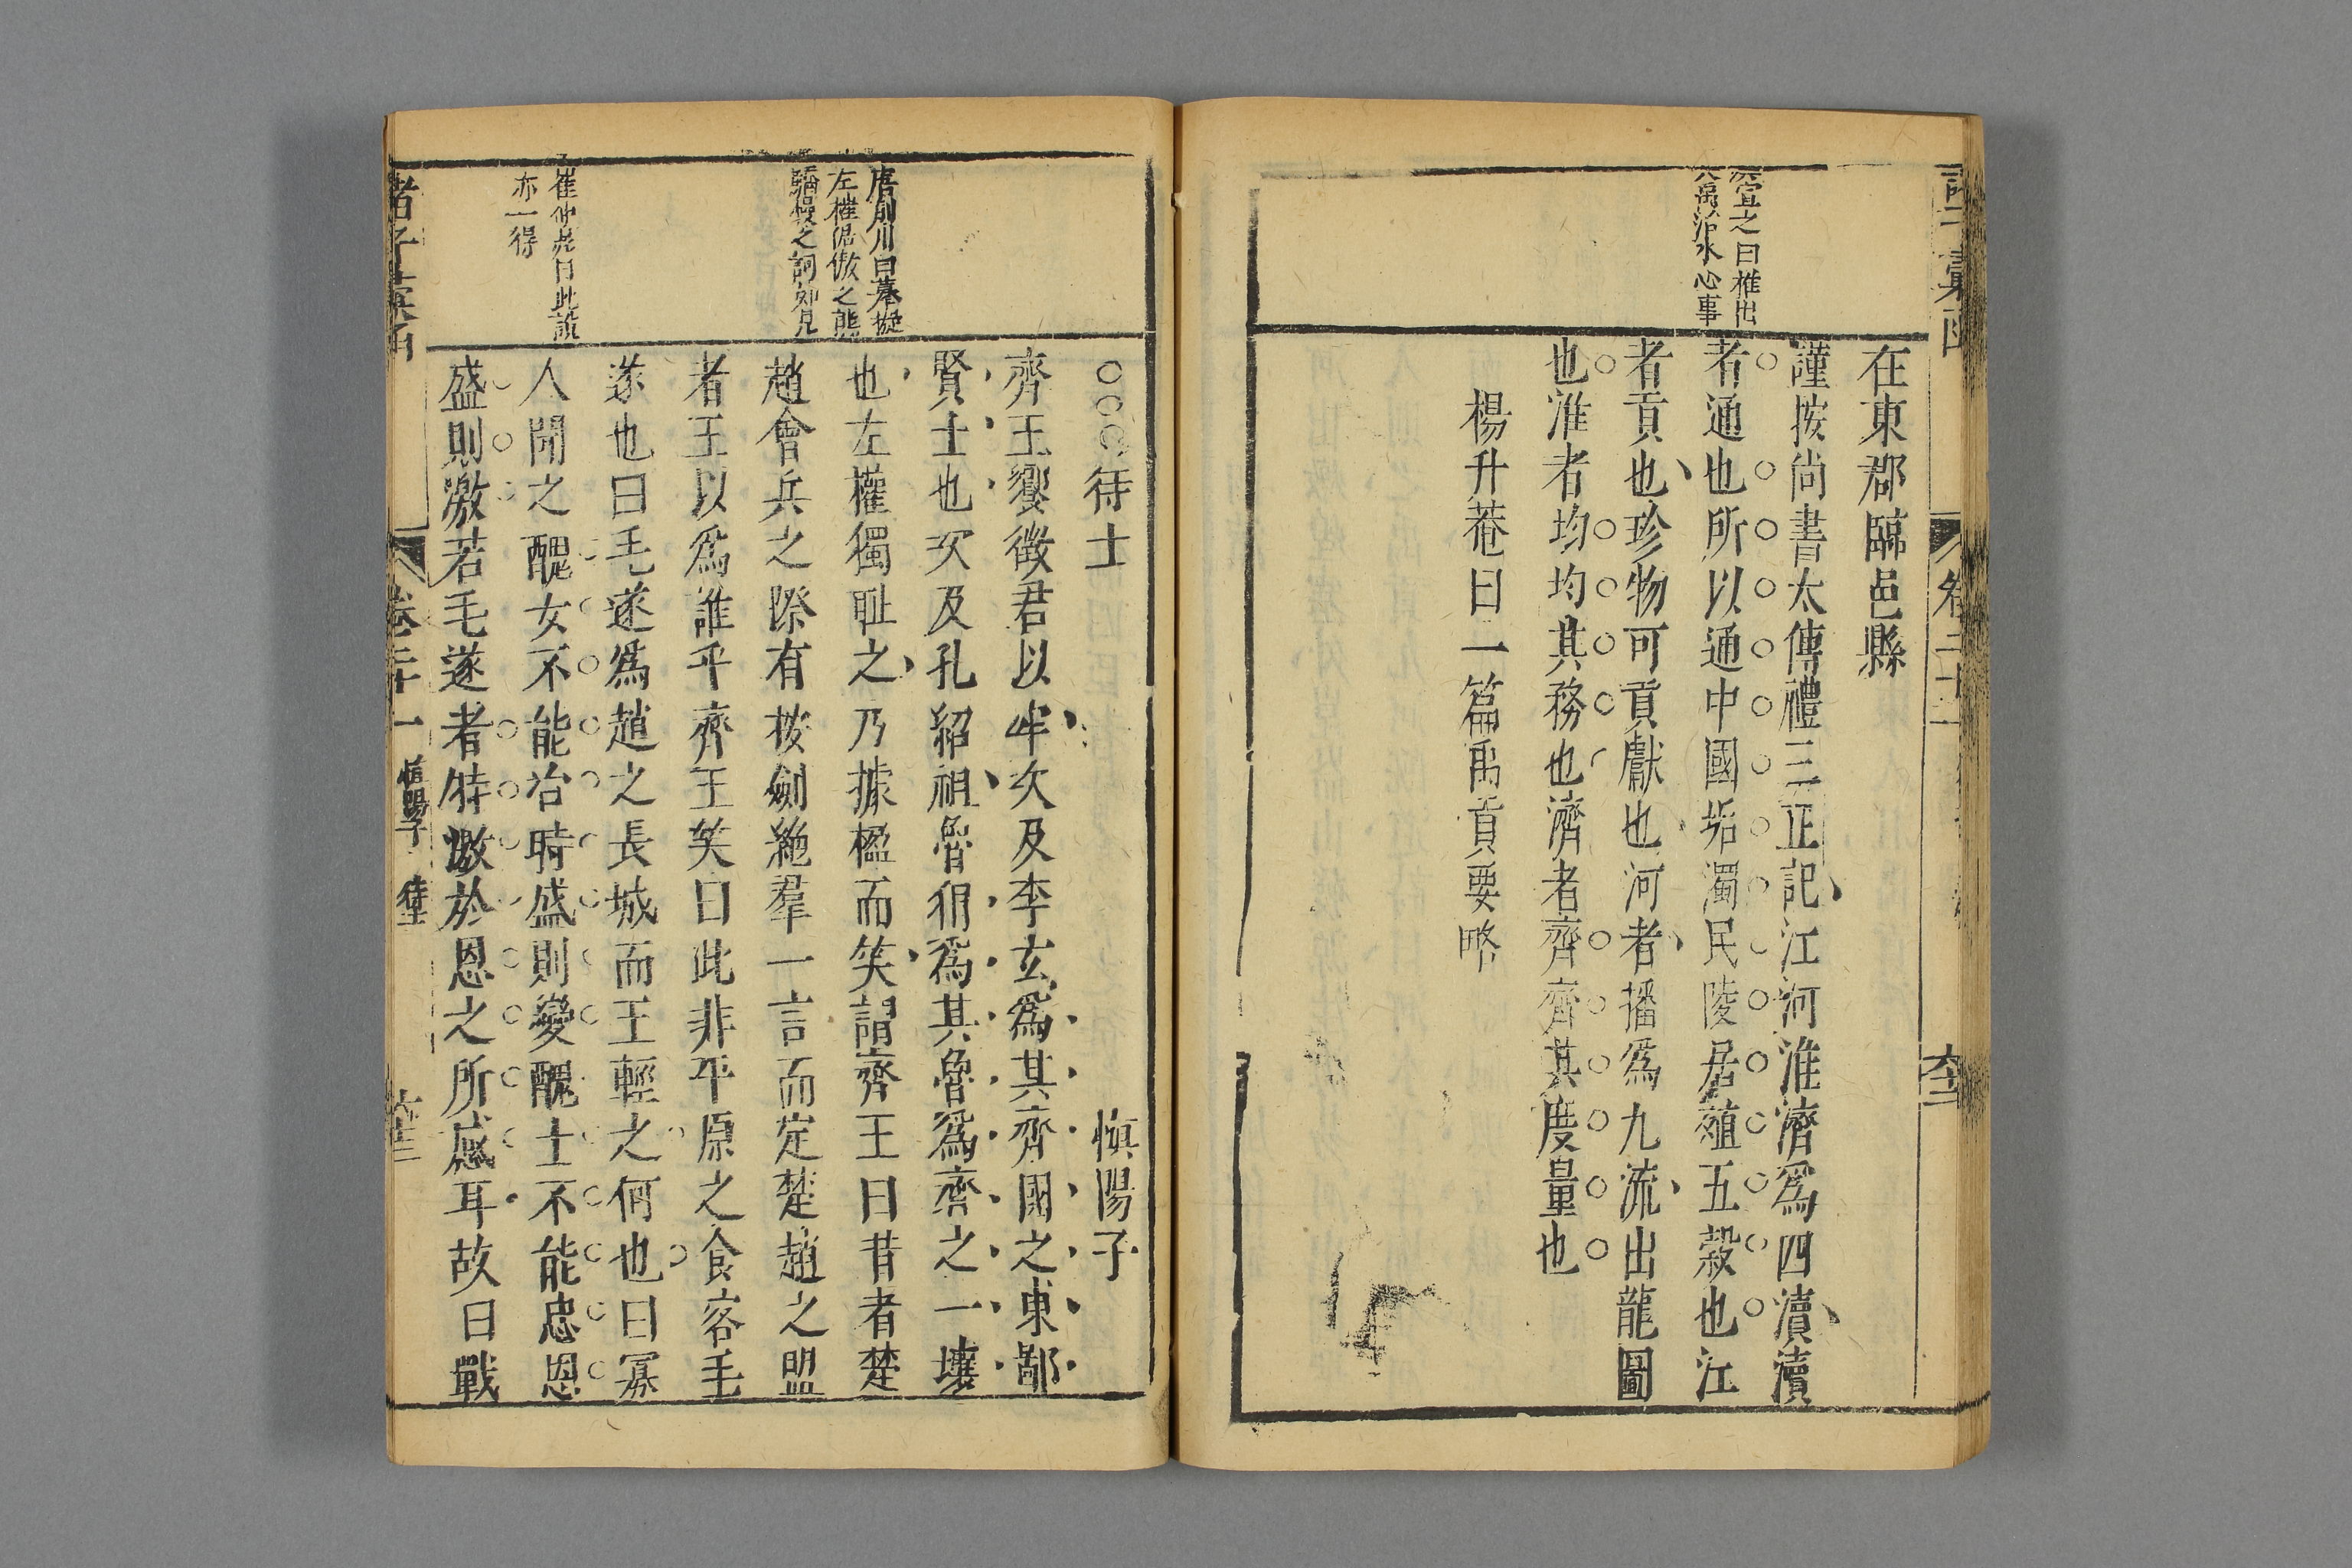 宣之曰推出
禹治水心事
在東郡臨邑縣
謹按尚書太傳禮三正記江河淮濟爲四瀆瀆
者通也所以通中國垢濁民陵居殖五穀也江
者貢也珍物可貢獻也河者播爲九流出龍圖
也淮者均均其務也濟者齊齊其度量也
楊升菴曰一篇禹貢要略
唐荊川曰摹擬
左權倨傲之態
驕慢之詞如見
此說
亦一得
待士 慎陽子
齊王饗徵君以牢次及李玄爲其齊國之東鄙
賢士也次及孔紹祖魯彻爲其魯爲齊之一壤
也左權獨耻之乃據楹而笑謂齊王曰昔者楚
趙會兵之際有按劍絶羣一言而定楚趙之盟
者王以爲誰乎齊王笑曰此非平原之食客毛
遂也曰毛遂爲趙之長城而王輕之何也曰寡
人聞之醜女不能冶時盛則變醜士不能忠恩
盛則激若毛遂者特激於恩之所感耳故曰戰
諸子彙函
卷二十一 慎陽子 待士